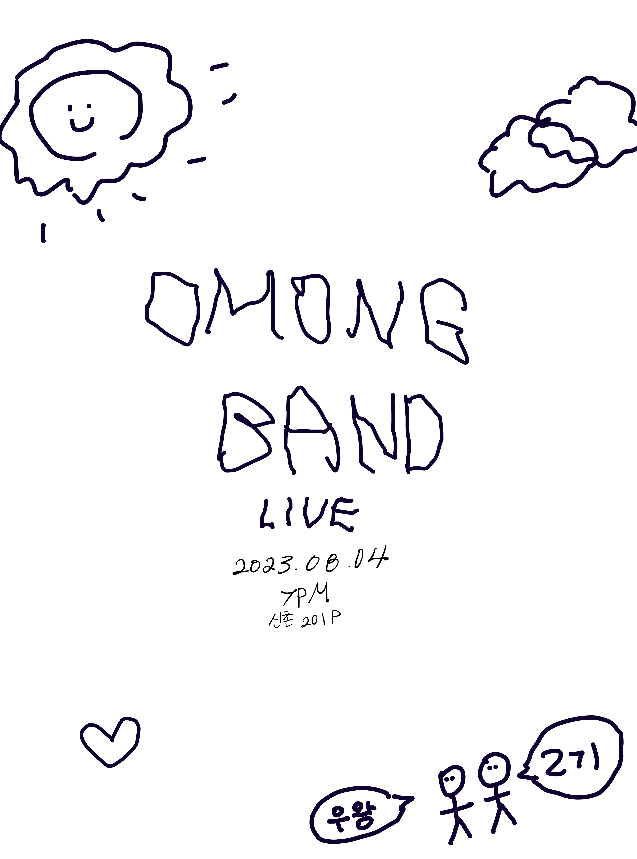 OMONG
BAND
LIVE
2023.08.04
7PM
신촌 201P
2기
우왕